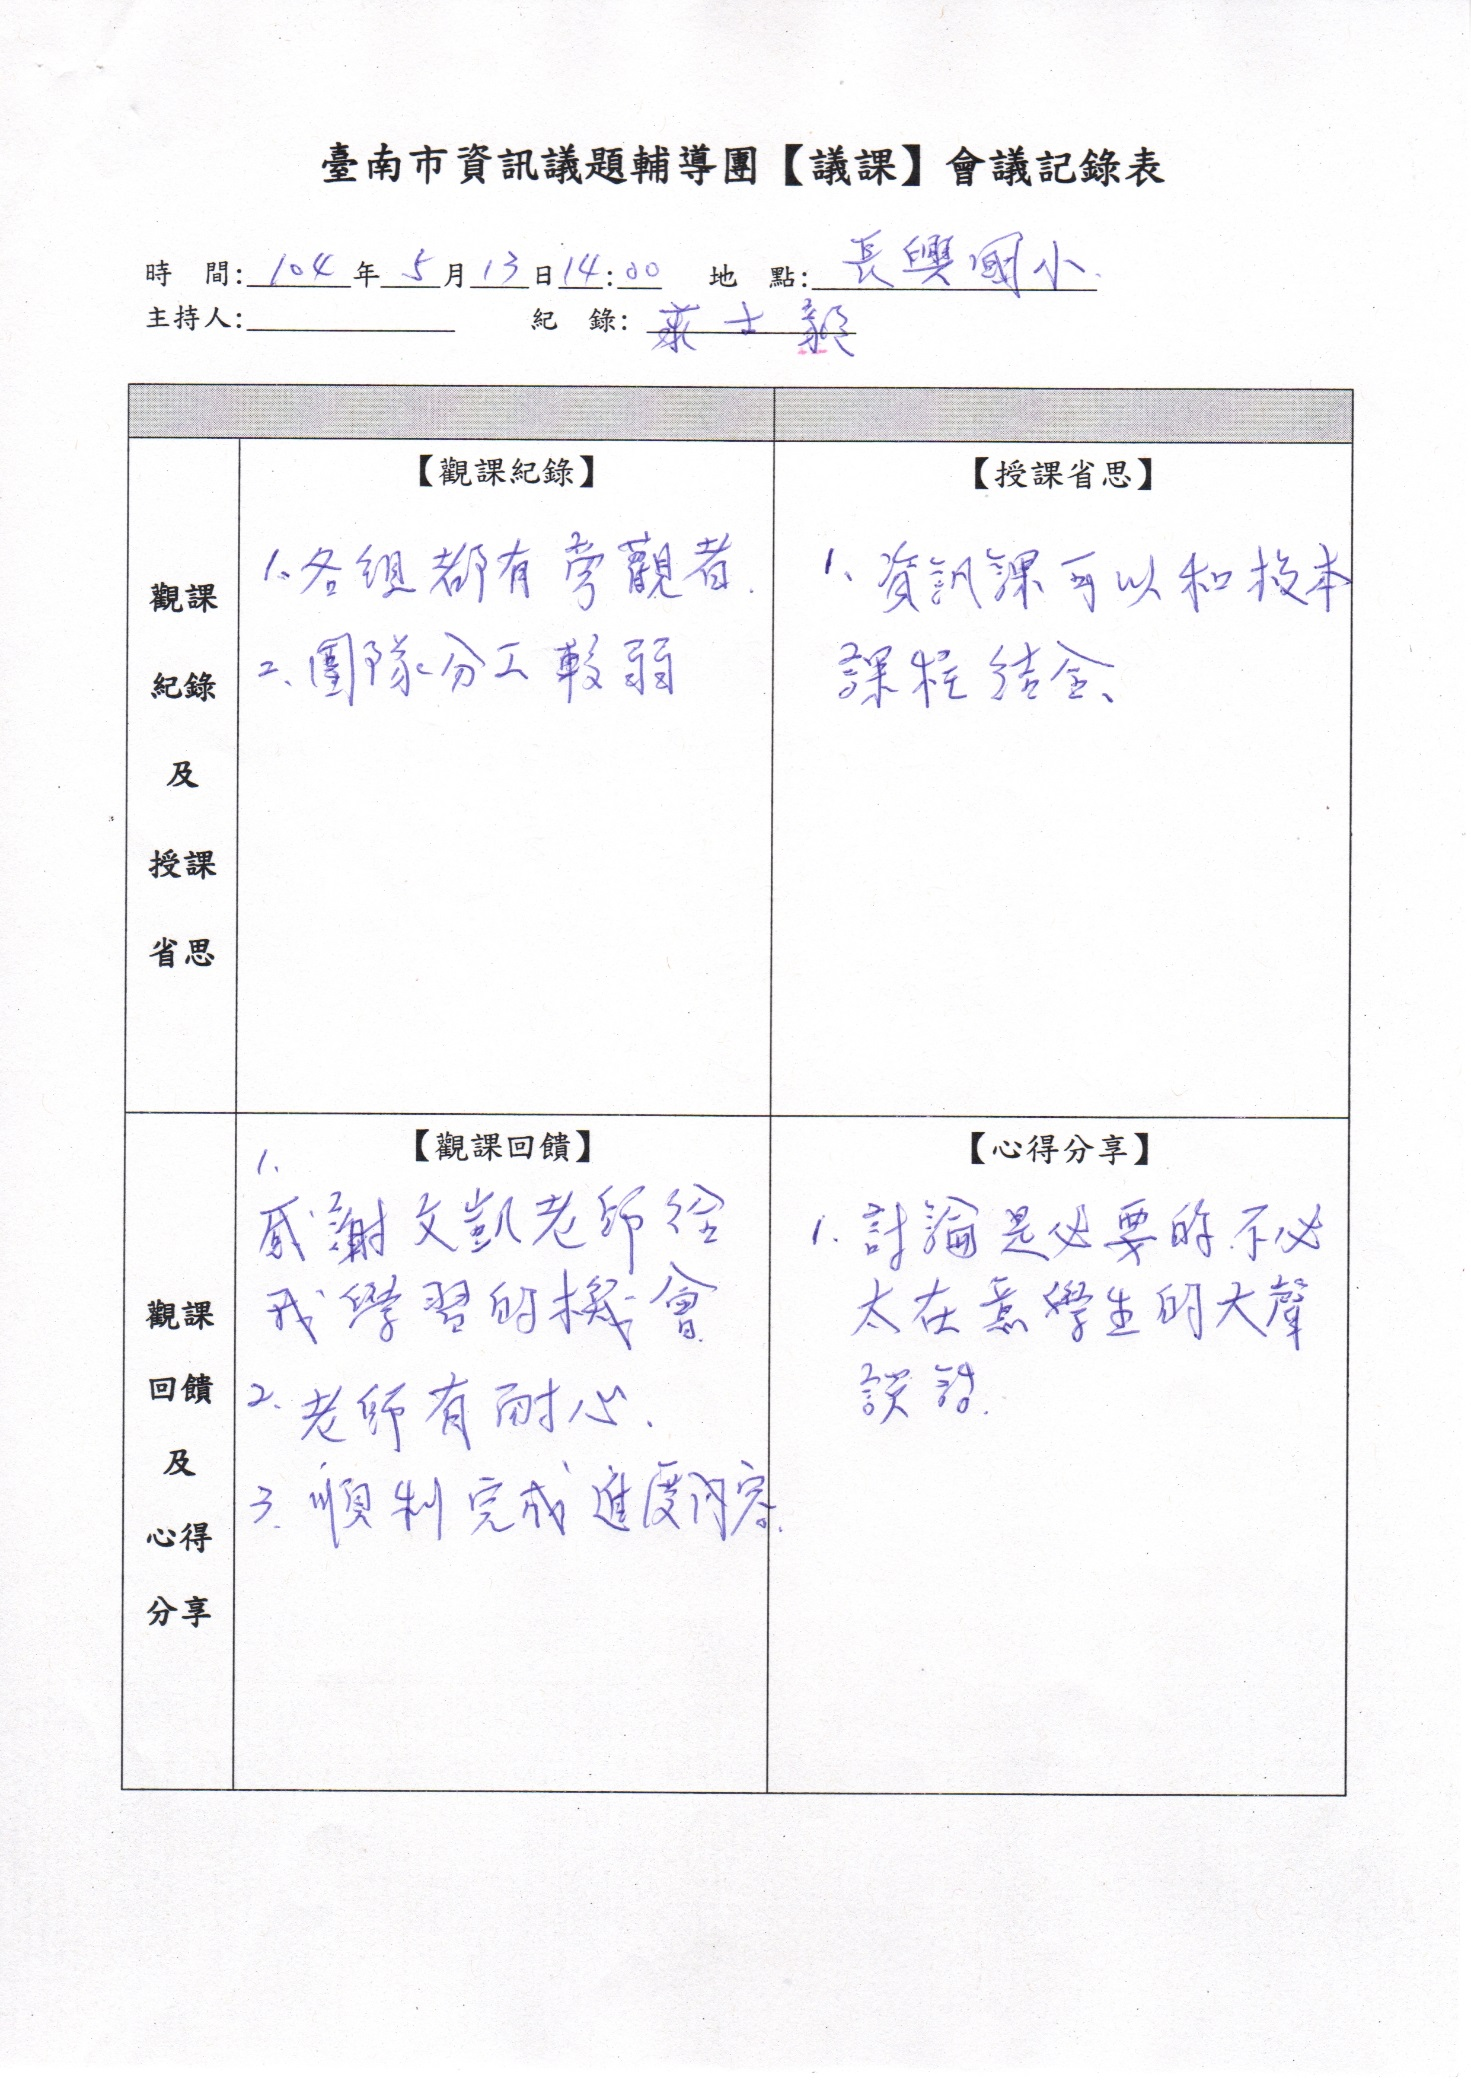 臺南市資訊議題輔導團【議課】會議記錄表
時 間:104年5月13日14:00 地 點:長興國小
主持人: 紀 錄: 士毅
【觀課紀錄】 【授課省思】
觀課
紀錄
及
授課
省思
1、各組都有旁觀者.
2、團隊分工較弱
1、資訊課可以和校本
課程結合、
【觀課回饋】 【心得分享】
觀課
回饋
及
心得
分享
1.
感謝文凱老師給
我學習的機會
2. 老師有耐心.
3. 順利完成進度內容.
1. 討論是必要的不必
太在意學生的大聲
談話.